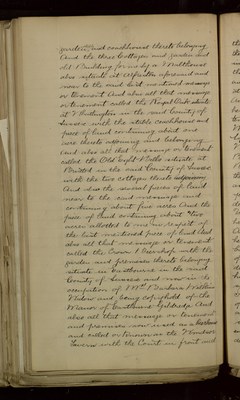 garden, and coachhouse thereto belonging
And the three Cottages and garden and
old Building formerly a Malthouse
also situate at Alfriston aforesaid and
near to the said last mentioned messuage
or tenement And also all that messuage
or tenement called the Royal Oak situate
at Worthington in the said County of
Sussex with the stable coachhouse and
piece of land containing about one
acre thereto adjoining and belonging
And also all that messuage or tenement
called the Old Eight Bells situate at
in the said County of Sussex
with the two cottages thereto adjoining
And also the several pieces of land
near to the said messuage and
containing about five acres And the
piece of land containing about
acres allotted to me in respect of
the last mentioned piece of land And
also all that messuage or tenement
called the Crown Beershop with the
garden and premises thereto belonging
situate in Eastbourne in the said
County of Sussex and now in the
occupation of Mrs Barbara
Widow and being copyhold of the
Manor of Eastbourne Gildredge And
also all that messuage or tenement
and premises now used as a
and called or known as the Windsor
Tavern with the Court in front and